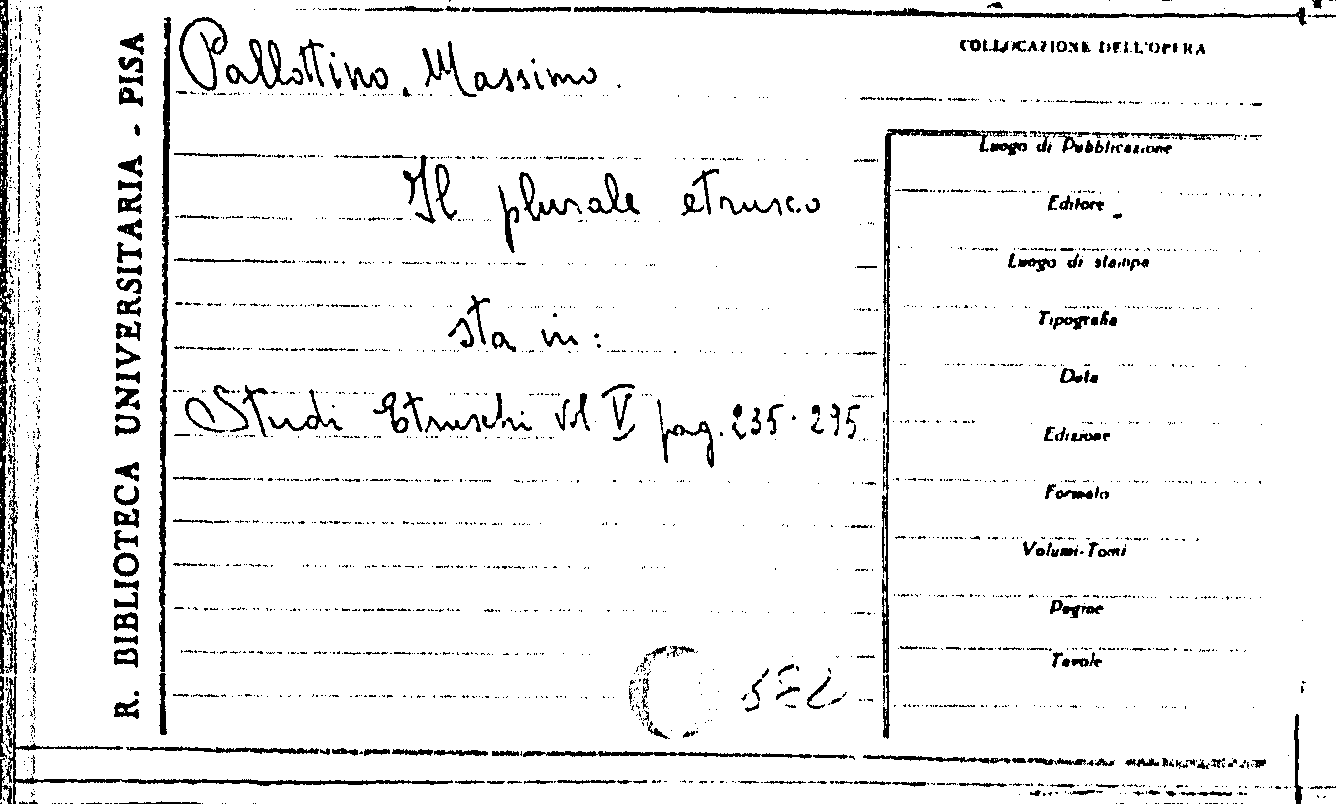 R. BIBLIOTECA UNIVERSITARIA - PISA
Pallottino, Massimo.
Il plurale etrusco
sta in:
Studi Etruschi vol V pag. 235-295
COLLOCAZIONE DELL'OPERA
Luogo di Pubblicazione
Editore
Luogo di stampa
Tipografia
Data
Edizione
Formato
Volumi-Tomi
Pagine
Tavole